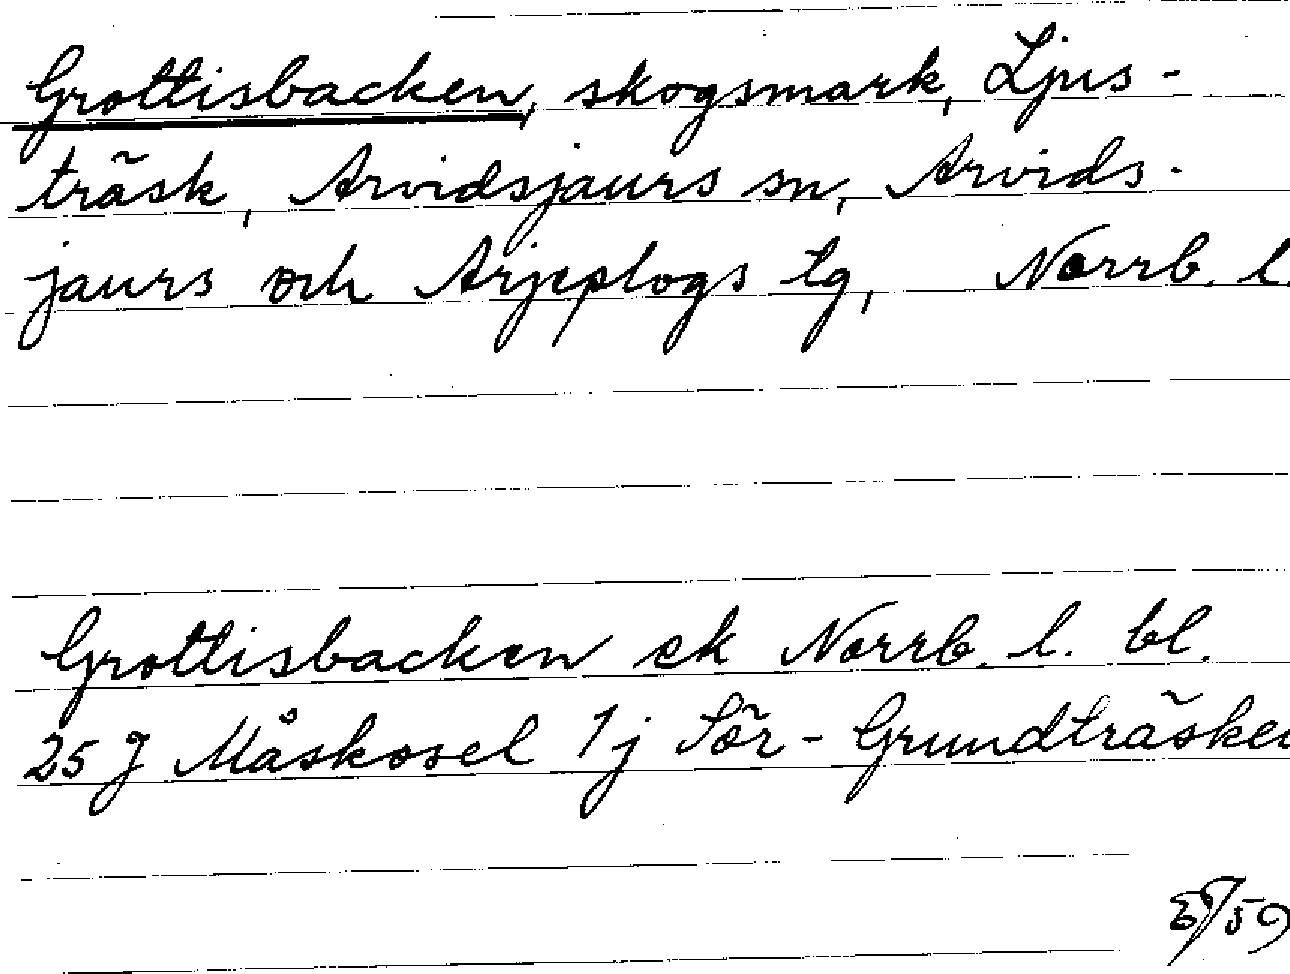 Grottisbacken, skogsmark, Ljus-
träsk, Arvidsjaurs sn, Arvids-
jaurs och Arjeplogs tg, Norrb. l.
Grottisbacken ek Norrb. l. bl.
25 J Måskosel 1j Sör-Grundträsket